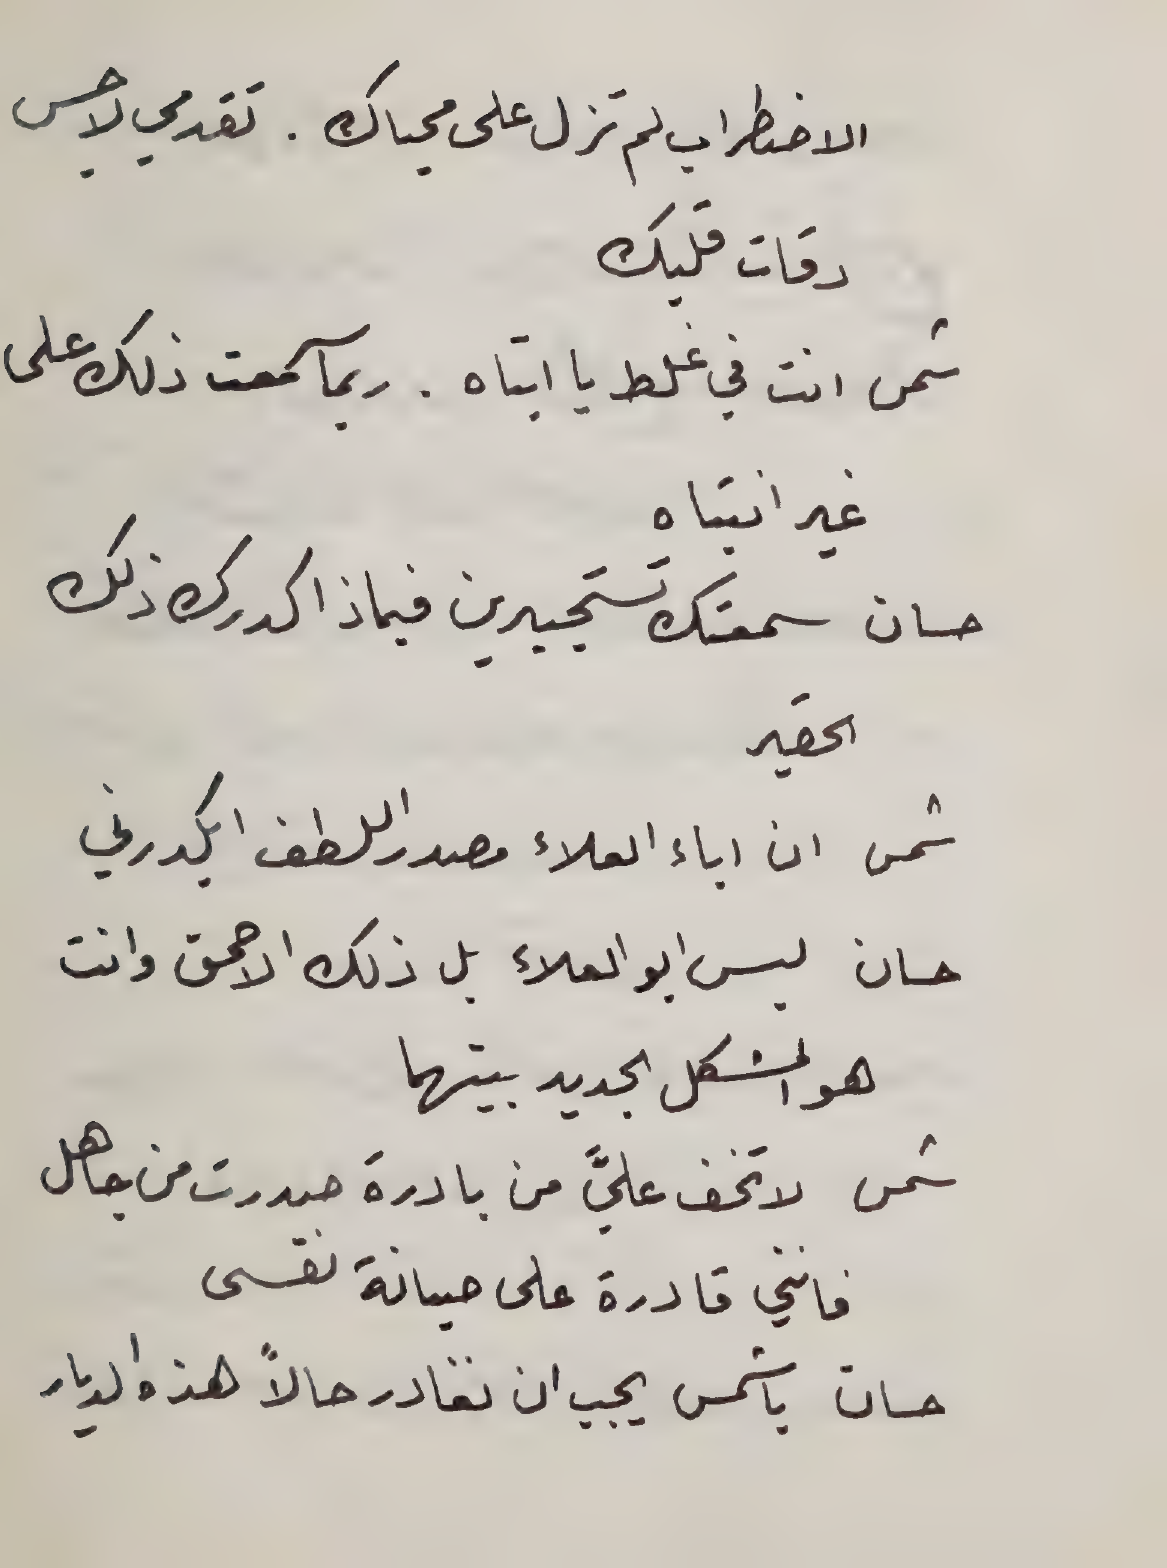 الاضطراب لم تزل على محياك . تقدمي لاجس
دقات قلبك
شمس انت في غلط يا ابتاه . ربما سمعت ذلك على
غير انتباه
حسان سمعتك تستجيرين فبماذا كدرك ذلك
الحقير
شمس ان اباء العلاء مصدر اللطف ايكدرني
حسان ليس ابو العلاء بل ذلك الاحمق وانت
هو المشكل الجديد بيتهما
شمس لا تخف عليَّ من بادرة صدرت من جاهل
فانني قادرة على صيانة نفسى
حسان يا شمس يجب ان نغادر حالاً هذه الديار